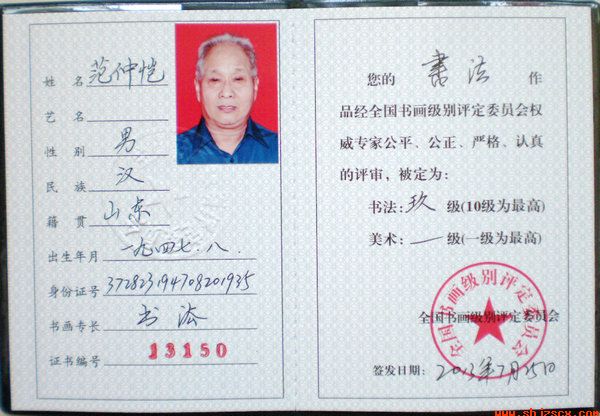 姓 名 范仲恺
艺 名
性 别 男
民 族 汉
籍 贯 山东
出生年月 一九四七.八.
身份证号 372823194708201935
书画专长 书法
证书编号 13150
您的 書法 作
品经全国书画级别评定委员会权
威专家公平、公正、严格、认真
的评审，被定为：
书法：玖 级(10级为最高)
美术：— 级(一级为最高)
全国书画级别评定委员会
全国书画级别评定委员会
签发日期：2013年7月25日
www.shjzscx.com